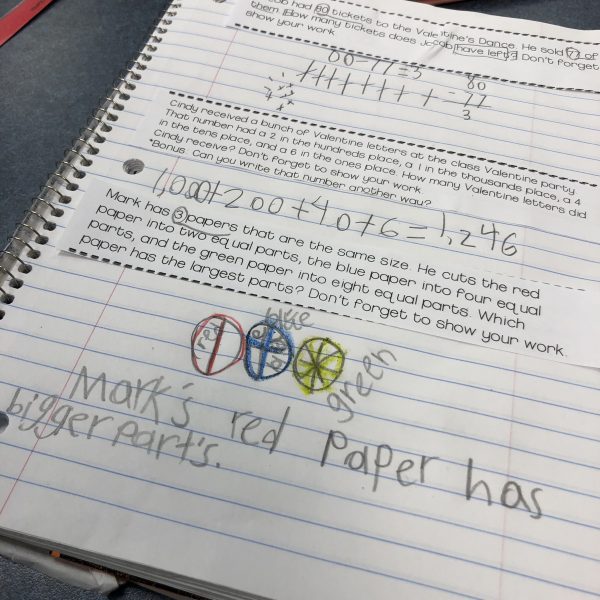 had 80 tickets to the Valentine's Dance. He sold 77 of
them. How many tickets does Jacob have left? Don't forget
show your work.
80-77=3
80
-77
3
Cindy received a bunch of Valentine letters at the class Valentine party.
That number had a 2 in the hundreds place, a 1 in the thousands place, a 4
in the tens place, and a 6 in the ones place. How many Valentine letters did
Cindy receive? Don't forget to show your work.
*Bonus: Can you write that number another way?
1,000+200+40+6=1,246
Mark has 3 papers that are the same size. He cuts the red
paper into two equal parts, the blue paper into four equal
parts, and the green paper into eight equal parts. Which
paper has the largest parts? Don't forget to show your work.
red
blue
green
Mark's red Paper has
bigger part's.